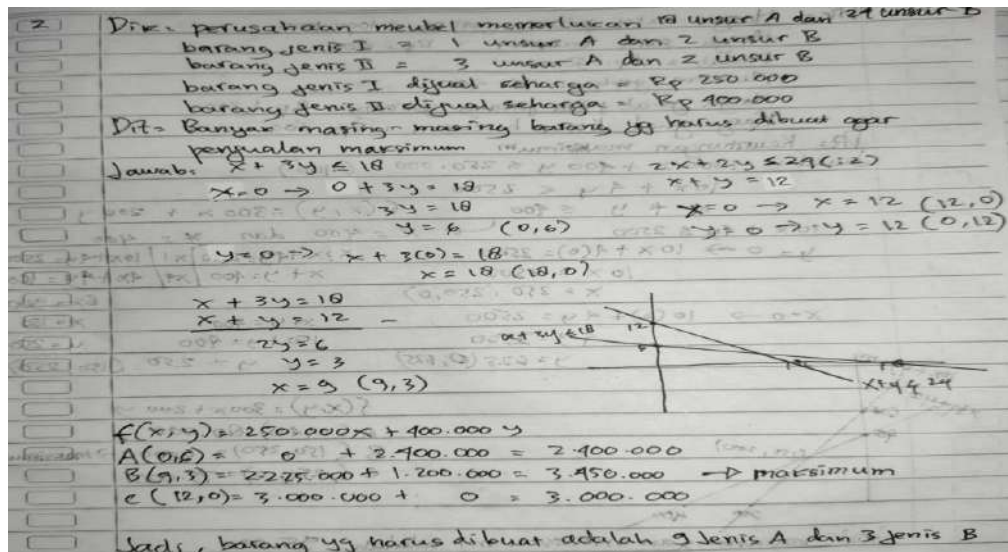 2 Dik: perusahaan meubel memerlukan 18 unsur A dan 24 unsur B
barang jenis I = 1 unsur A dan 2 unsur B
barang jenis II = 3 unsur A dan 2 unsur B
barang jenis I dijual seharga = Rp 250.000
barang jenis II dijual seharga = Rp 400.000
Dit= Banyak masing-masing barang yg harus dibuat agar
penjualan maksimum
Jawab: x + 3y ≤ 18 2x + 2y ≤ 24 (:2)
x=0 → 0 + 3y = 18 x + y = 12
3y = 18 x=0 → x = 12 (12,0)
y = 6 (0,6) y=0 → y = 12 (0,12)
y=0 → x + 3(0) = 18
x = 18 (18,0)
x + 3y = 18
x + y = 12 -
2y = 6
y = 3
x = 9 (9,3)
x + 3y ≤ 18
12
x+y ≤ 24
f(x,y) = 250.000x + 400.000y
A(0,6) = 0 + 2.400.000 = 2.400.000
B(9,3) = 2.225.000 + 1.200.000 = 3.450.000 → maksimum
c(12,0) = 3.000.000 + 0 = 3.000.000
Jadi, barang yg harus dibuat adalah 9 Jenis A dan 3 jenis B